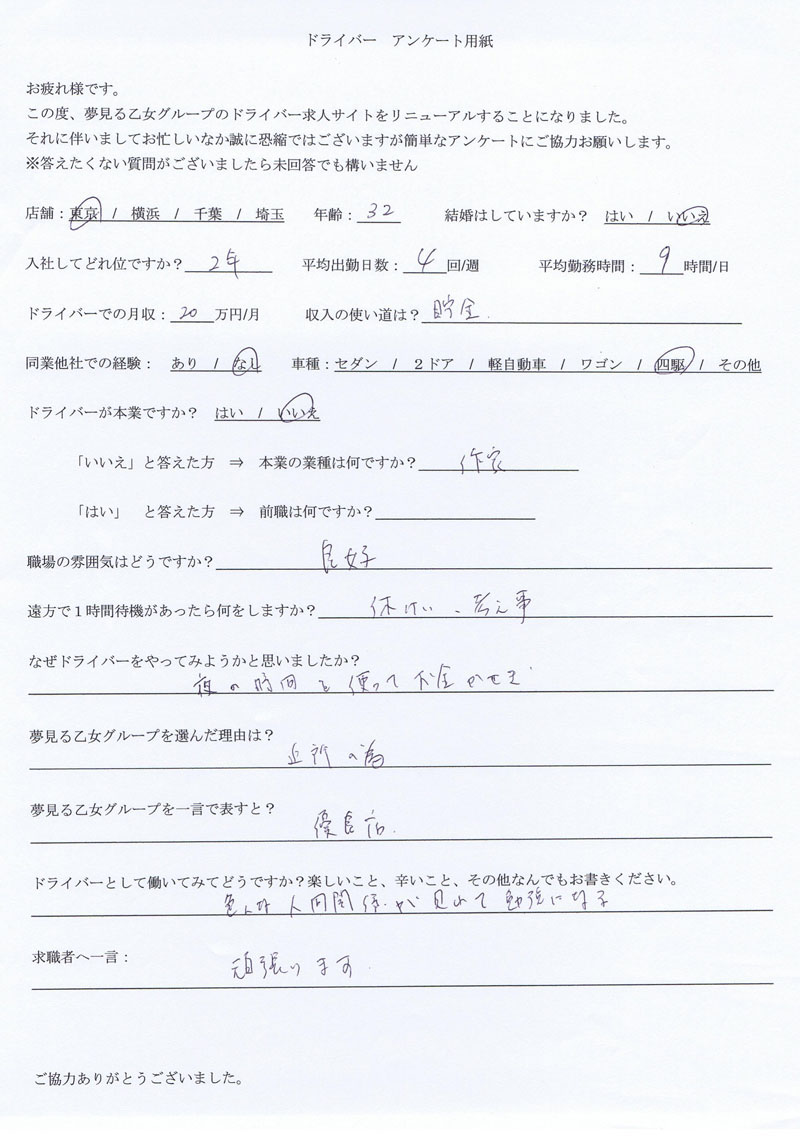 ドライバー　アンケート用紙
お疲れ様です。
この度、夢見る乙女グループのドライバー求人サイトをリニューアルすることになりました。
それに伴いましてお忙しいなか誠に恐縮ではございますが簡単なアンケートにご協力お願いします。
※答えたくない質問がございましたら未回答でも構いません
店舗：東京 / 横浜 / 千葉 / 埼玉　年齢：32　結婚はしていますか？　はい / いいえ
入社してどれ位ですか？ 2年　平均出勤日数： 4 回/週　平均勤務時間： 9 時間/日
ドライバーでの月収： 20 万円/月　収入の使い道は？ 貯金.
同業他社での経験：　あり / なし　車種：セダン / ２ドア / 軽自動車 / ワゴン / 四駆 / その他
ドライバーが本業ですか？　はい / いいえ
「いいえ」と答えた方　⇒　本業の業種は何ですか？ 作家
「はい」　と答えた方　⇒　前職は何ですか？
職場の雰囲気はどうですか？ 良好
遠方で１時間待機があったら何をしますか？ 休けい、考え事
なぜドライバーをやってみようかと思いましたか？
夜の時間を使ってお金かせぎ
夢見る乙女グループを選んだ理由は？
近所の為
夢見る乙女グループを一言で表すと？
優良店.
ドライバーとして働いてみてどうですか？楽しいこと、辛いこと、その他なんでもお書きください。
色んな人間関係が見れて勉強になる
求職者へ一言：
頑張ります.
ご協力ありがとうございました。